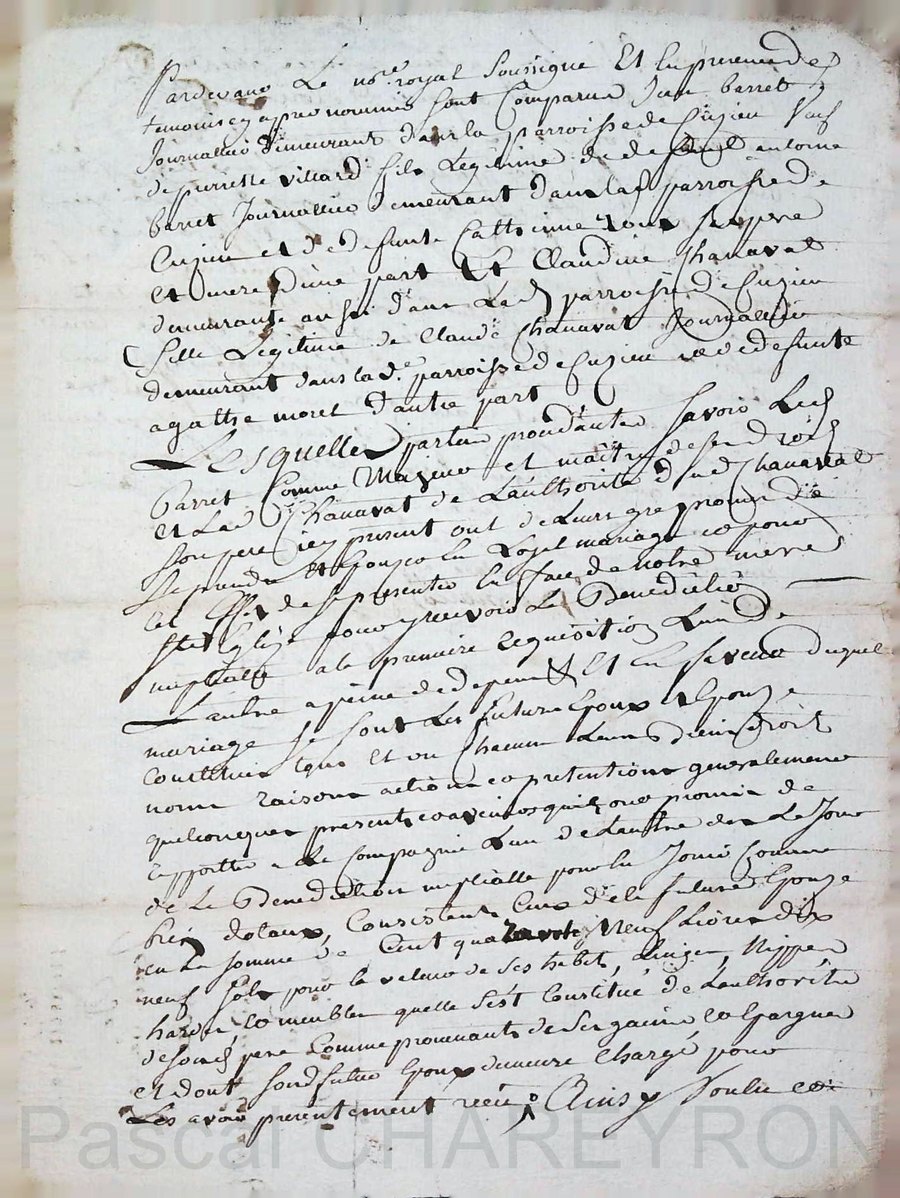 Pardevant Le nore royal Soussigné Et En presence des
temoins cy apres nommés Sont Comparus Jean barret
Journallier demeurant dans la parroisse de Cuzieu Veuf
de pierrette villard fils Legitime de deffunt antoine
barret Journallier demeurant dans lad parroisse de
Cuzieu et de defunte Catherine roux Ses pere
et mere d'une part Et Claudine Chanavat
demeurante aussi dans Lad parroisse de Cuzieu
fille Legitime de Claude Chanavat Journallier
demeurant dans la de parroisse de Cuzieu et de defunte
agathe moret d'autre part
Lesquelles parties procedantes Savoir Led
Barret Comme Majeur et maître de ses droits
et La d Chanavat de L'aulthorité dud Chanavat
Son pere icy present ont de Leurs gré promis de
Se prendre Et Epouser En Loyal mariage et pour
cet Effet de Se presenter En face de notre mere
Ste Eglise pour y recevoir La Benediction
nuptialle a la premiere requisition L'un de
L'autre a peine de depens & Et En faveur duquel
mariage Se Sont Les future Epoux Et Epouze
Constitués tous Et un Chacun Leurs biens droits
noms raisons actions et pretentions generalement
quelconques presents et avenir qu'ils ont promis de
apporter a La Compagnie L'un de L'autre des Le Jour
de La Benediction nuptialle pour En Jouir Comme
bien dotaux, Consistants Ceux de la future Epouze
en La Somme de Cent quarante Neuf Livres dix
neuf Sols pour la valeur de Ses habits, Linges, Nippes
hardes et meubles quelle S'est Constitué de L'aulthorité
de Sond pere Comme provenants de Ses gains et Epargnes
et dont Sond futur Epoux demeure Chargé pour
Les avoir presentement reçu, Ainsy Voulu et
Pascal CHAREYRON